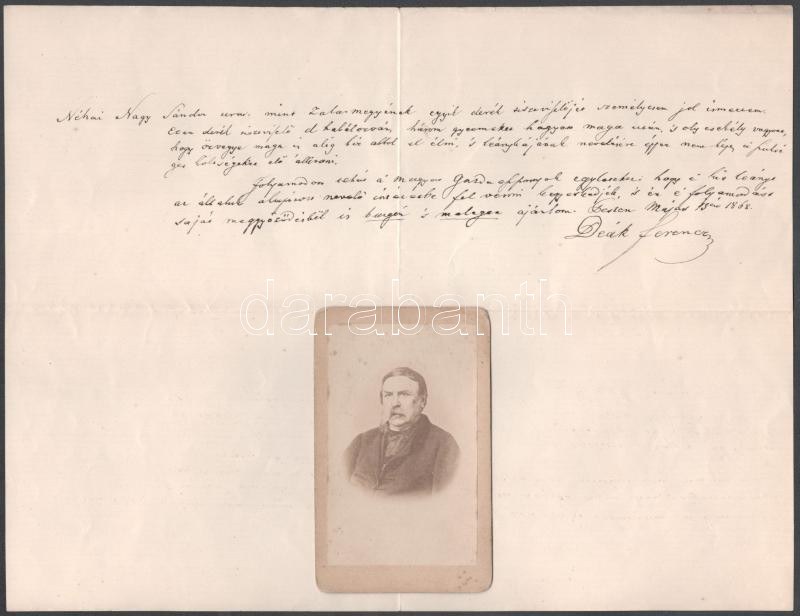 Néhai Nagy Sándor urat, mint Zalamegyének egyik derék tisztviselőjét személyesen jól ismertem.
Ezen derék tisztviselő el halálozván, három gyermeket hagyott maga után, 's oly csekély vagyont,
hogy özvegye maga is alig bir abból el élni, 's leánykájának nevelésére éppen nem képes a szüksé
ges költségeket elő állitani.
Folyamodom tehát a Magyar Gazdasszonyok egyletéhez: hogy e kis leányt
az általuk alapitott nevelő intézetbe fel venni kegyeskedjék, 's én e folyamodást
saját meggyőződésből is buzgón 's melegen ajánlom. Pesten Május 1868.
Deák Ferencz
darabanth